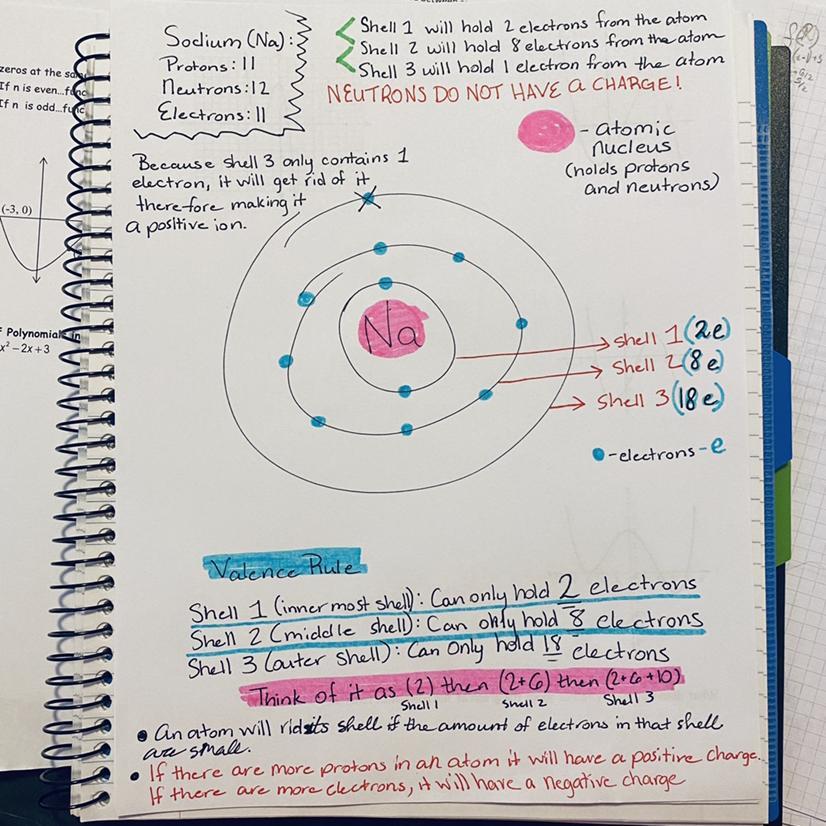 Sodium (Na):
Protons: 11
Neutrons: 12
Electrons: 11
Shell 1 will hold 2 electrons from the atom
Shell 2 will hold 8 electrons from the atom
Shell 3 will hold 1 electron from the atom
NEUTRONS DO NOT HAVE A CHARGE!
- atomic
nucleus
(holds protons
and neutrons)
Because shell 3 only contains 1
electron, it will get rid of it
therefore making it
a positive ion.
Na
shell 1 (2e)
shell 2 (8e)
shell 3 (18e)
- electrons - e
Valence Rule
Shell 1 (inner most shell): Can only hold 2 electrons
Shell 2 (middle shell): Can only hold 8 electrons
Shell 3 (outer shell): Can only hold 18 electrons
Think of it as (2) then (2+6) then (2+6+10)
Shell 1 Shell 2 Shell 3
• An atom will rid its shell if the amount of electrons in that shell
are small.
• If there are more protons in an atom it will have a positive charge.
If there are more electrons, it will have a negative charge
zeros at the
If n is even...
If n is odd...
(-3, 0)
Polynomials
x² - 2x + 3